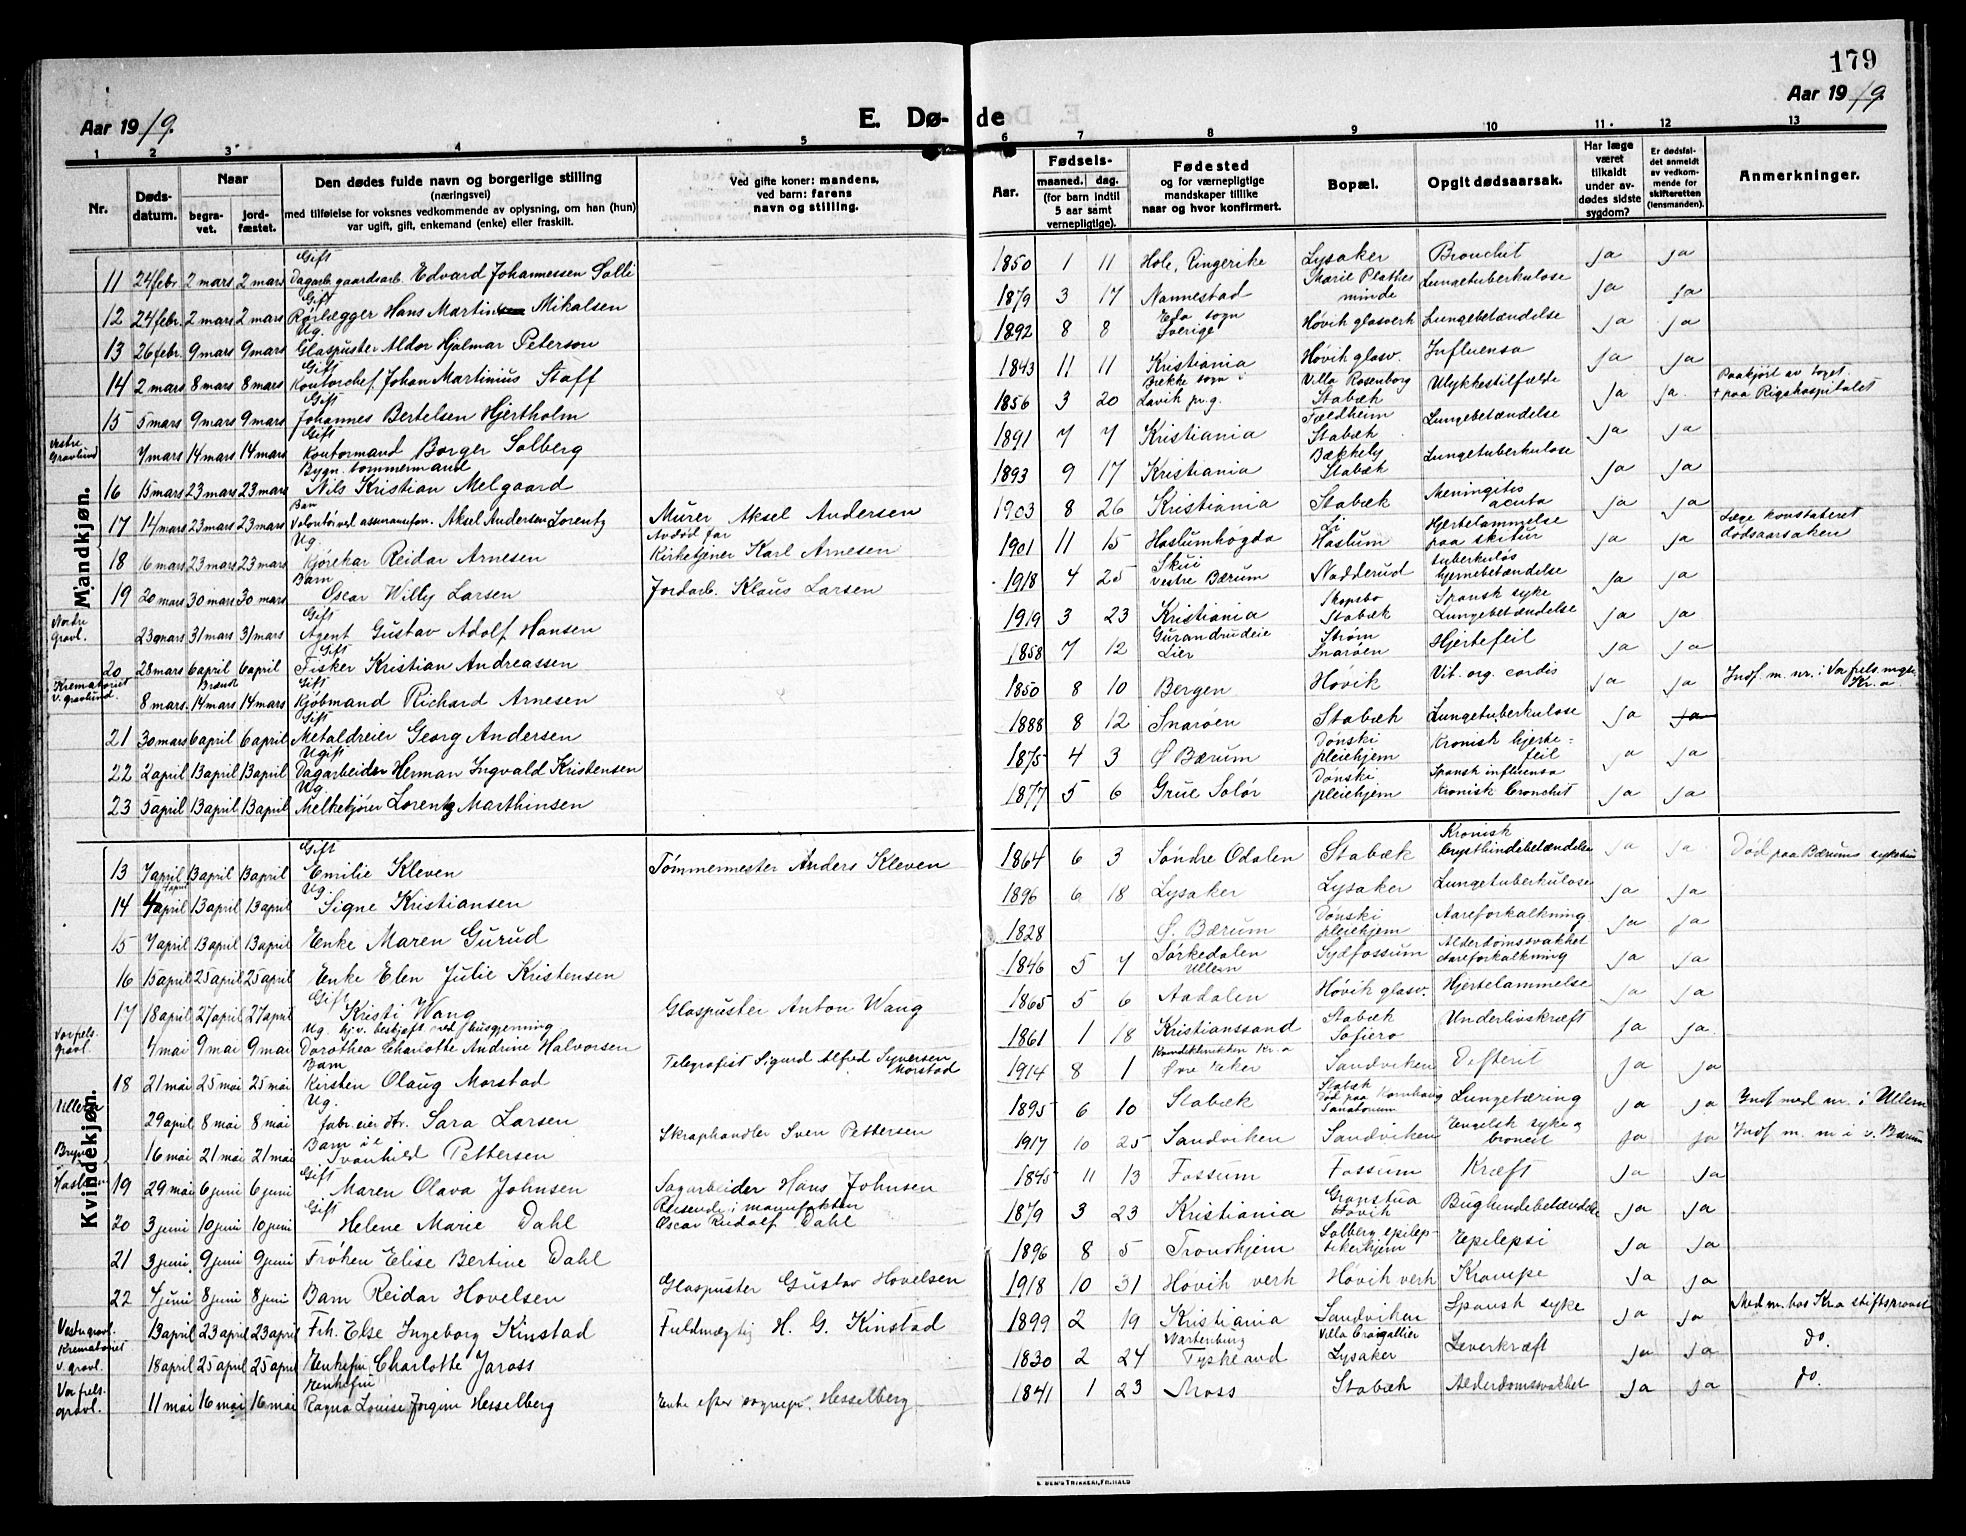 179
Aar 1919.
E. Dø-de
Aar 1919.
1 2 3 4 5 6 7 8 9 10 11 12 13
Nr.
Døds-datum.
Naar
begra-vet.
jord-fæstet.
Den dødes fulde navn og borgerlige stilling
(næringsvei)
med tilføielse for voksnes vedkommende av oplysning, om han (hun)
var ugift, gift, enkemand (enke) eller fraskilt.
Ved gifte koner: mandens,
ved barn: farens
navn og stilling.
Aar.
Fødsels-
maaned. dag.
(for barn indtil
5 aar samt
vernepligtige).
Fødested
og for værnepligtige
mandskaper tillike
naar og hvor konfirmert.
Bopæl.
Opgit dødsaarsak.
Har læge
været
tilkaldt
under av-
dødes sidste
sygdom?
Er dødsfal-
det anmeldt
av vedkom-
mende for
skifteretten
(lensmanden).
Anmerkninger.
Mandkjøn.
11 24 febr. 2 mars 2 mars Gift Dagarb. gaardsarb. Edvard Johannessen Solli 1850 1 11 Hole, Ringerike Lysaker Bronchit Ja Ja
12 24 febr. 2 mars 2 mars Gift Rørlægger Hans Martin Mikalsen 1879 3 17 Nannestad Marie Plathes minde Lungetuberkulose Ja Ja
13 26 febr. 9 mars 9 mars Ug. Glaspuster Aldor Hjalmar Peterson 1892 8 8 Eda sogn Sverige Høvik glasverk Lungebetændelse Ja Ja
14 2 mars 8 mars 8 mars Gift Kontorchef Johan Martinius Staff 1843 11 11 Kristiania Høvik glasv. Influensa Ja Ja
15 5 mars 9 mars 9 mars Gift Johannes Bertelsen Hjertholm 1856 3 20 Brekke sogn i Lavik pr.g. Villa Rosenborg Stabæk Ulykkestilfælde Ja Ja. Paakjørt av toget. + paa Rigshospitalet
Vestre Gravlund 7 mars 14 mars 14 mars Gift Kontormand Borger Solberg 1891 7 7 Kristiania Fældheim Stabæk Lungebetændelse Ja Ja
16 15 mars 23 mars 23 mars Bygn. tømmermand Nils Kristian Melgaard 1893 9 17 Kristiania Bækkely Stabæk Lungetuberkulose Ja Ja
17 14 mars 23 mars 23 mars Barn Volontør ved assuransefor. Aksel Andersen Lorentz Murer Aksel Andersen 1903 8 26 Kristiania Stabæk Meningitis acuta Ja Ja
18 6 mars 23 mars 23 mars Ug. Kjørekar Reidar Arnesen Avdød far Kirketjener Karl Arnesen 1901 11 15 Haslumhøgda Li Haslum Hjertelammelse paa skitur Ja Ja Læge konstateret dødsaarsaken
19 20 mars 30 mars 30 mars Barn Oscar Willy Larsen Jordarb. Klaus Larsen 1918 4 25 Skui vestre Bærum Nadderud tuberkuløs hjernebetændelse Ja Ja
Nordre gravl. 23 mars 31 mars 31 mars Gift Agent Gustav Adolf Hansen 1919 3 23 Kristiania Skogsbo Stabæk Spansk syke Lungebetændelse Ja Ja
20 28 mars 6 april 6 april Gift Fisker Kristian Andreassen 1858 7 12 Lier Strøm Snarøen Hjertefeil Ja Ja
Krematoriet V. gravlund. 8 mars. Brændt 14 mars 14 mars Gift Kjøbmand Richard Arnesen 1850 8 10 Bergen Høvik Vit. org. cordis Ja Ja Indf. m. nr. i Vor frels. mgh. Kr.a.
21 30 mars 6 april 6 april Gift Metaldreier Georg Andersen 1888 8 12 Snarøen Stabæk Lungetuberkulose Ja Ja
22 2 april 13 april 13 april Ugift Dagarbeider Herman Ingvald Kristensen 1875 4 3 Ø. Bærum Dønski pleiehjem Kronisk hjerte-feil Ja Ja
23 5 april 13 april 13 april Ug. Melkekjører Lorentz Marthinsen 1877 5 6 Grue Solør Dønski pleiehjem Spansk influensa Kronisk bronchit Ja Ja
Kvindekjøn.
13 7 april 13 april 13 april Gift Emilie Kleven Tømmermester Anders Kleven 1864 6 3 Søndre Odalen Stabæk Kronisk brysthindebetændelse Ja Ja Død paa Bærums sykehus
14 4 april 13 april 13 april Ug. Signe Kristiansen 1896 6 18 Lysaker Lysaker Lungetuberkulose Ja Ja
15 7 april 13 april 13 april Enke Maren Gurud 1828 Ø. Bærum Dønski pleiehjem Aareforkalkning Ja Ja
16 15 april 25 april 25 april Enke Elen Julie Kristensen 1846 5 7 Sørkedalen Ullern Sydfossum Alderdomssvakhet Aareforkalkning Ja Ja
17 18 april 27 april 27 april Gift Kristi Wang Glaspuster Anton Wang 1865 5 6 Aadalen Høvik glasv. Hjertelammelse Ja Ja
Vor frels. gravl. 4 mai 9 mai 9 mai Ug. hjv. beskjæft. ved husgjerning Dorothea Charlotte Andrine Halvorsen 1861 1 18 Kristianssand Stabæk Sofiero Underlivskræft Ja Ja
18 21 mai 25 mai 25 mai Barn Kirsten Olaug Morstad Telegrafist Sigurd Alfred Syversen Morstad 1914 8 1 Kvindeklinikken Kr.a Øvre Eker Sandviken Difterit Ja Ja
Ullern 29 april 8 mai 8 mai Ug. fabr. eier dtr. Sara Larsen 1895 6 10 Stabæk Stabæk Død paa Kornhaug Sanatorium Lungetæring Ja Ja Indf med nr. i Ullern
Bryn 16 mai 21 mai 21 mai Barn Svanhild Pettersen Skraphandler Sven Pettersen 1917 10 25 Sandviken Sandviken Engelsk syke og broncit Ja Ja Indf. m. nr i v. Bærum
Haslum 19 29 mai 6 juni 6 juni Gift Maren Olava Johnsen Sagarbeider Hans Johnsen 1845 11 13 Fossum Fossum Kræft Ja Ja
20 3 juni 10 juni 10 juni Gift Helene Marie Dahl Reisende i manufaktur Oscar Rudolf Dahl 1879 3 23 Kristiania Granstua Høvik Bughindebetændelse Ja Ja
21 3 juni. 9 juni 9 juni Frøken Elise Bertine Dahl 1896 8 5 Trondhjem Solberg epilep-tikerhjem Epilepsi Ja Ja
22 4 juni 8 juni 8 juni Barn Reidar Hovelsen Glaspuster Gustav Hovelsen 1918 10 31 Høvik verk Høvik verk Krampe Ja Ja
Vestre gravl. 13 april 23 april 23 april Frk. Else Ingeborg Kinstad Fuldmægtig H. G. Kinstad 1899 2 19 Kristiania Sandviken Spansk syke Ja Ja Med nr. hos Kra stiftsprovst
Krematoriet v. gravl. 18 april 25 april 25 april Enkefru Charlotte Jaross 1830 2 24 Wartenburg Tyskland Villa Craigallier Lysaker Leverkræft Ja Ja do.
Vor frels. gravl. 11 mai 16 mai 16 mai Enkefru Ragna Louise Jørgine Hesselberg Enke efter sognepr. Hesselberg 1841 1 23 Moss Stabæk Alderdomssvakhet Ja Ja do.